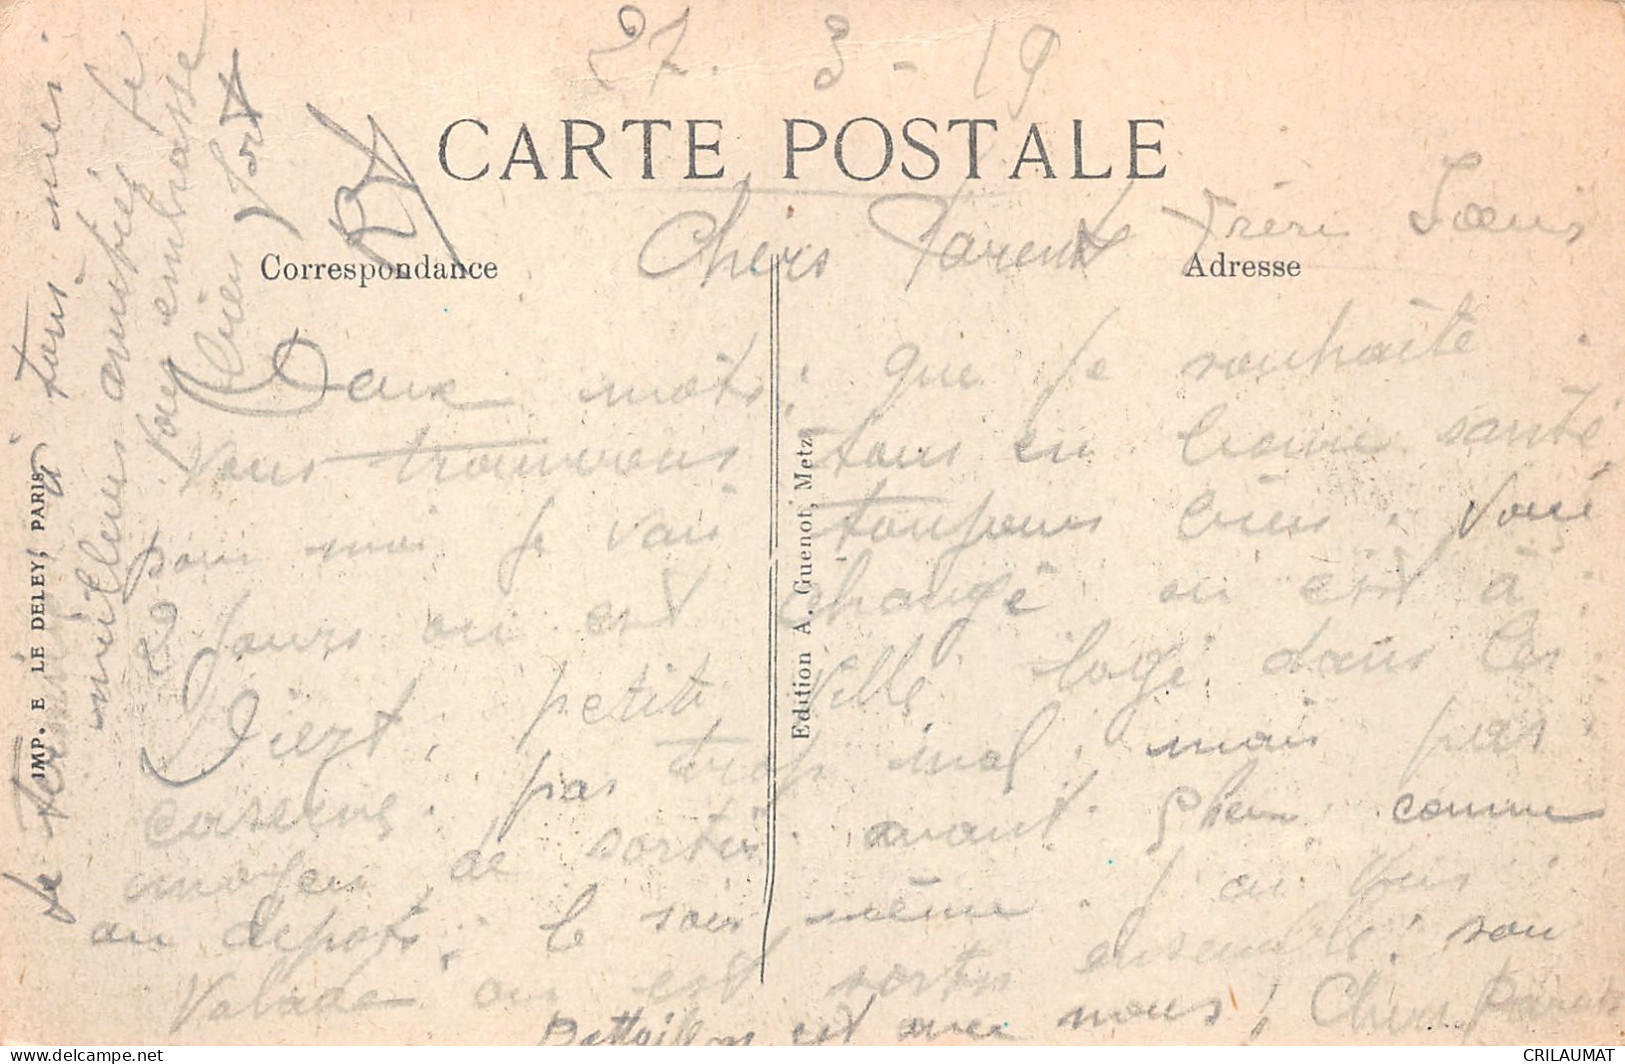 27 - 3 - 19
CARTE POSTALE
Chers Parents Frère Sœurs
Correspondance
Adresse
Deux mots : que je souhaite
vous trouverons tous en bonne santé
pour moi je vais toujours bien . Voici
2 jours on est changé on est à
Diezt , petite ville logé dans les
caserne . pas trop mal . mais pas
moyen de sortir avant 5 heur comme
au depots ; le soir même . j ai vus
Valade on est sortis ensemble : son
Bataillon est avec nous ! Chers Parents
Je termine
tous mes
meilleurs amitiés je
vous embrasse
bien fort
IMP. E LE DELEY, PARIS
Edition A. Guenot, Metz
CRILAUMAT